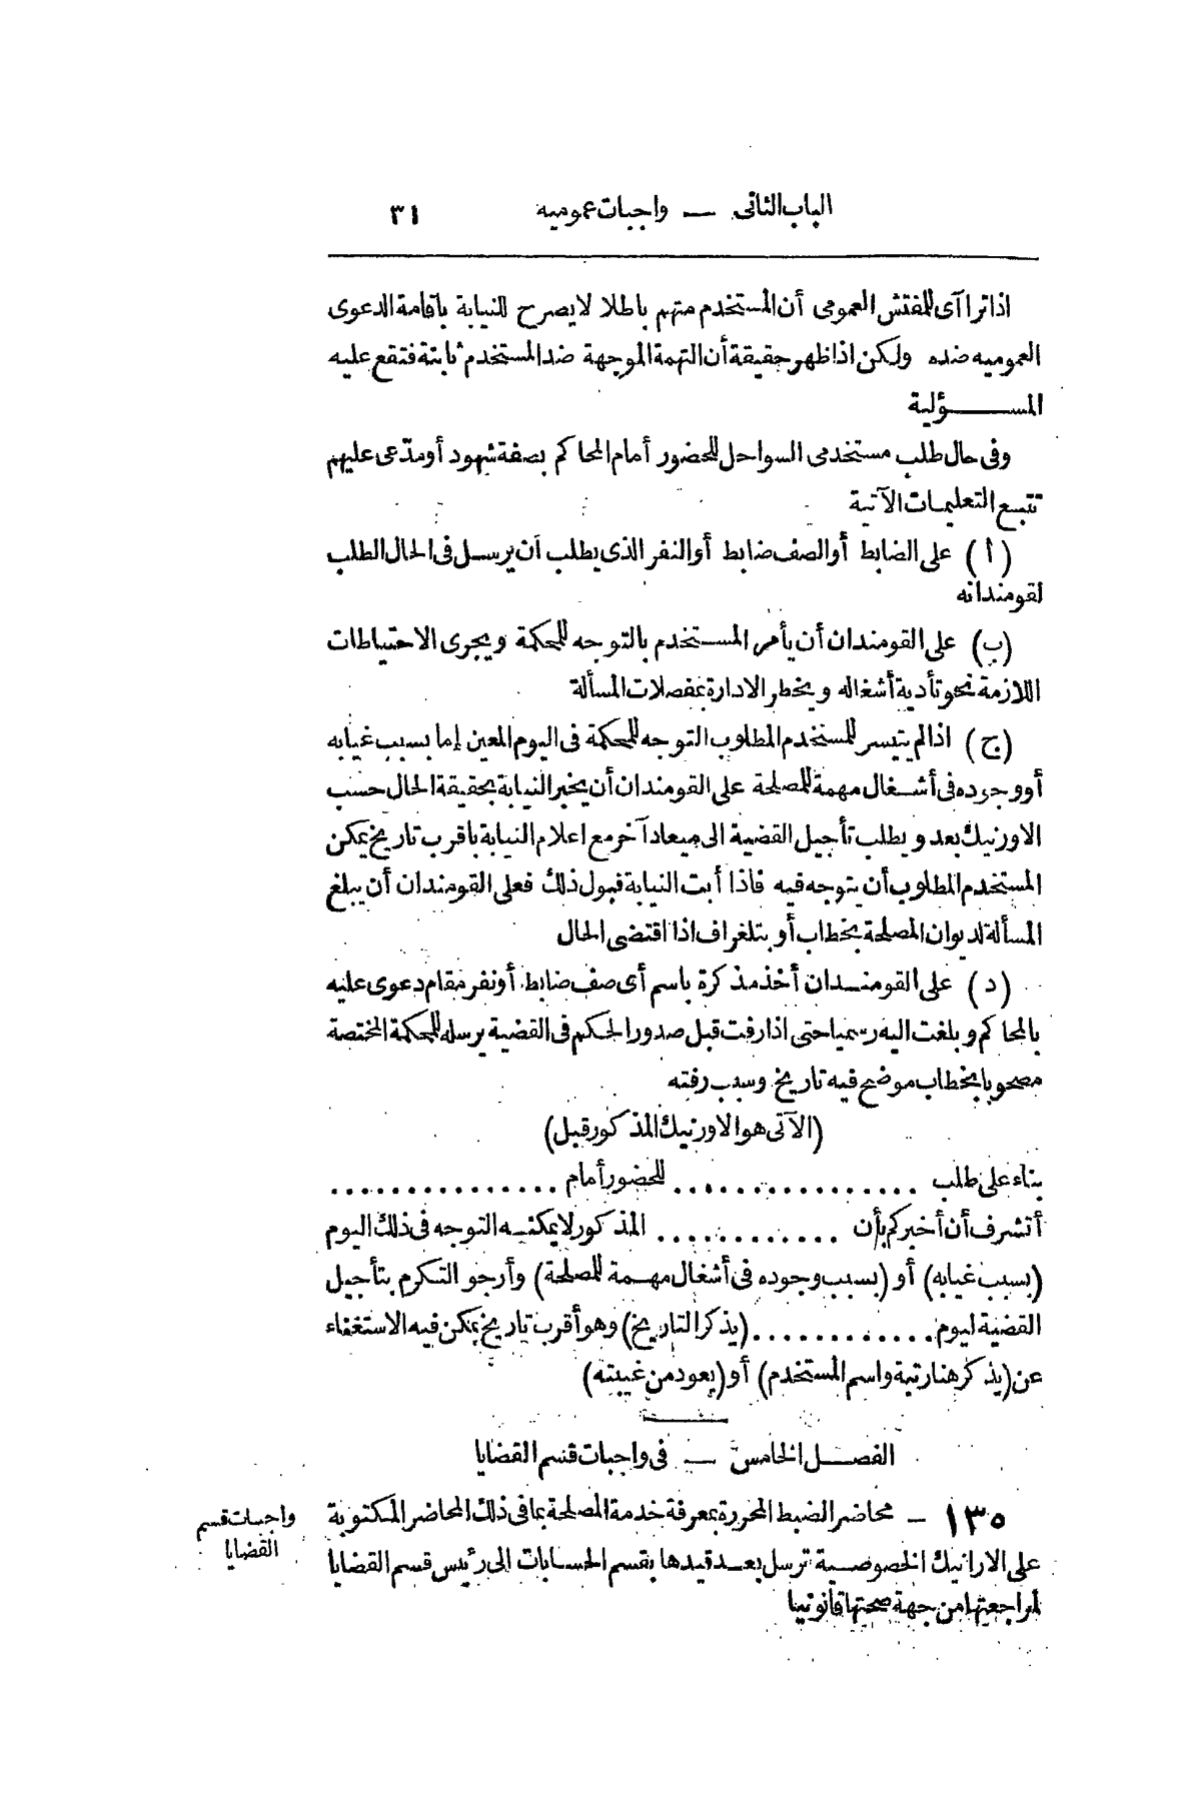 الباب الثانى — واجبات عموميه ٣١
اذا تراآى للمفتش العمومى أن المستخدم متهم باطلا لا يصرح للنيابة باقامة الدعوى
العموميه ضده ولكن اذا ظهر حقيقة أن التهمة الموجهة ضد المستخدم ثابتة فتقع عليه
المسؤلية
وفى حال طلب مستخدمى السواحل للحضور أمام المحاكم بصفة شهود أو مدّعى عليهم
تتبع التعليمات الآتية
(أ) على الضابط أو الصف ضابط أو النفر الذى يطلب أن يرسل فى الحال الطلب
لقومندانه
(ب) على القومندان أن يأمر المستخدم بالتوجه للمحكمة ويجرى الاحتياطات
اللازمة نحو تأدية أشغاله ويخطر الادارة بمفصلات المسألة
(ج) اذا لم يتيسر للمستخدم المطلوب التوجه للمحكمة فى اليوم المعين إما بسبب غيابه
أو وجوده فى أشغال مهمة للمصلحة على القومندان أن يخبر النيابة بحقيقة الحال حسب
الاورنيك بعد ويطلب تأجيل القضية الى ميعاد آخر مع اعلام النيابة باقرب تاريخ يمكن
المستخدم المطلوب أن يتوجه فيه فاذا أبت النيابة قبول ذلك فعلى القومندان أن يبلغ
المسألة لديوان المصلحة بخطاب أو بتلغراف اذا اقتضى الحال
(د) على القومندان أخذ مذكرة باسم أى صف ضابط أو نفر مقام دعوى عليه
بالمحاكم وبلغت اليه رسميا حتى اذا رفت قبل صدور الحكم فى القضية يرسله للمحكمة المختصة
مصحوبا بخطاب موضح فيه تاريخ وسبب رفته
(الآتى هو الاورنيك المذكور قبل)
بناء على طلب ................ للحضور أمام ...............
أتشرف أن أخبركم بأن ............ المذكور لا يمكنه التوجه فى ذلك اليوم
(بسبب غيابه) أو (بسبب وجوده فى أشغال مهمة للمصلحة) وأرجو التكرم بتأجيل
القضية ليوم ............ (يذكر التاريخ) وهو أقرب تاريخ يمكن فيه الاستغناء
عن (يذكر هنا رتبة واسم المستخدم) أو (يعود من غيبته)
الفصل الخامس — فى واجبات قسم القضايا
١٣٥ – محاضر الضبط المحررة بمعرفة خدمة المصلحة بما فى ذلك المحاضر المكتوبة
واجبات قسم
القضايا
على الارانيك الخصوصية ترسل بعد قيدها بقسم الحسابات الى رئيس قسم القضايا
لمراجعتها من جهة صحتها قانونيا